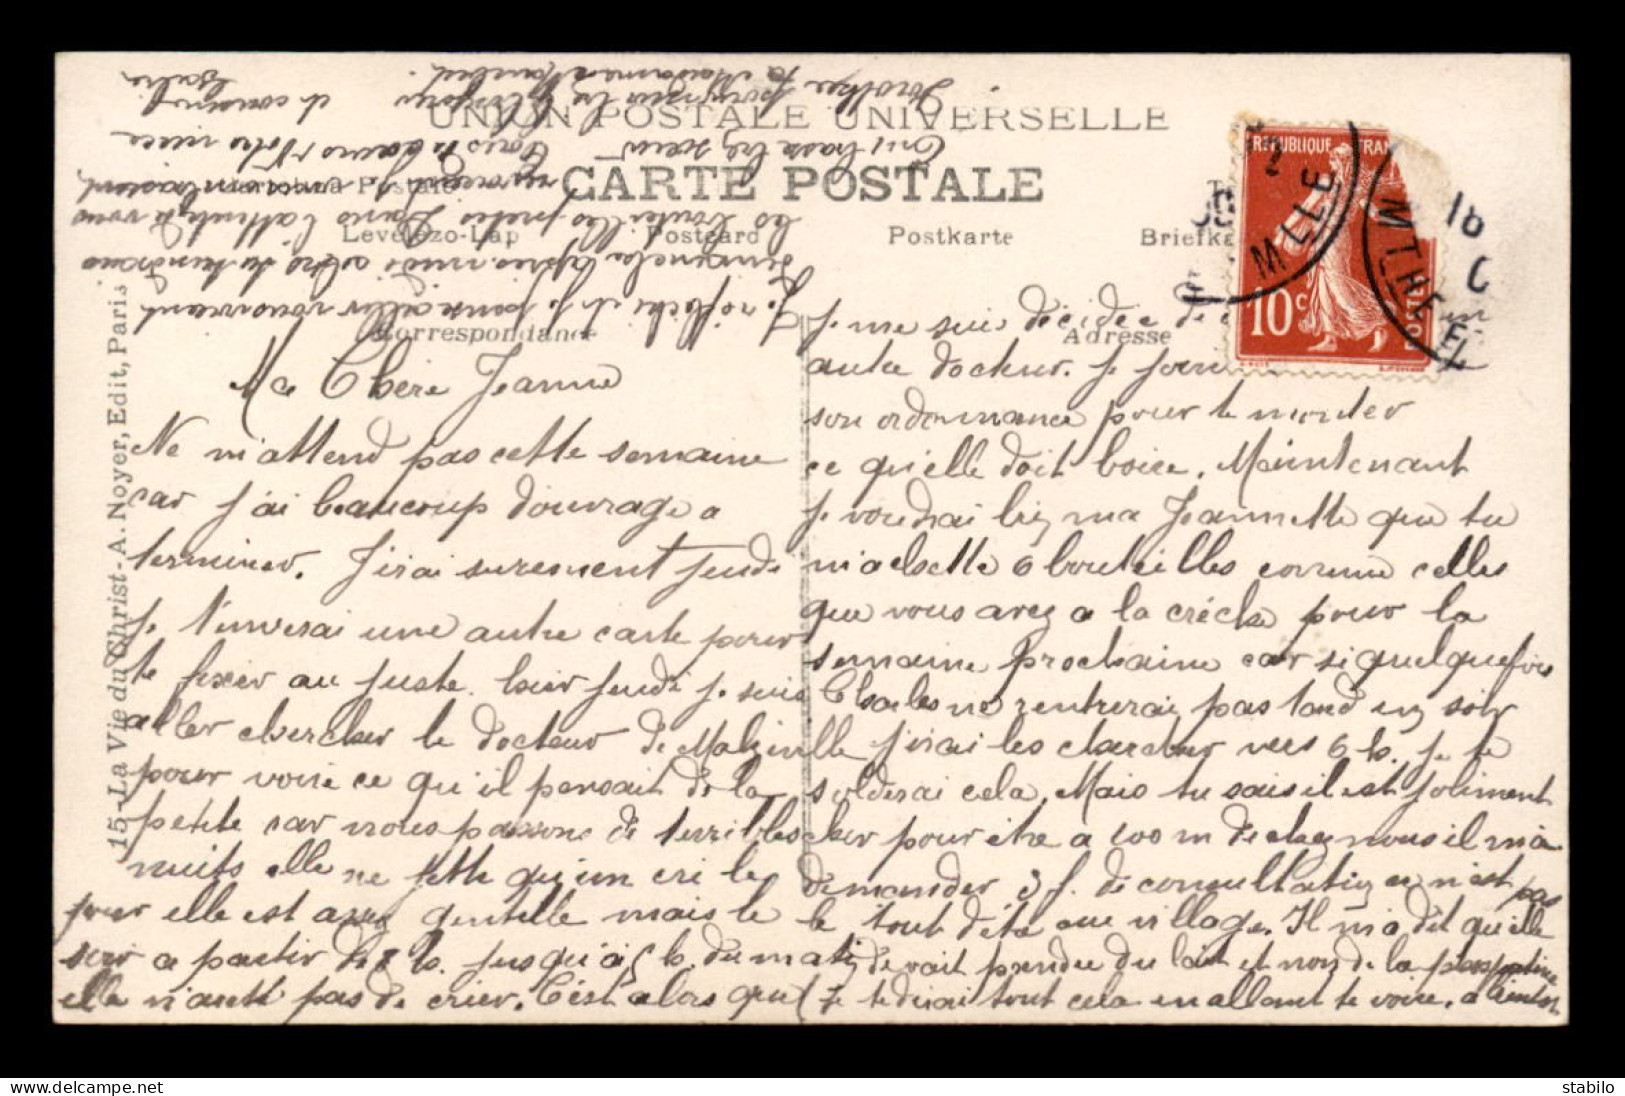 UNION POSTALE UNIVERSELLE
CARTE POSTALE
Postale
Levelezo-Lap
Postcard
Postkarte
Correspondance
Adresse
15-La Vie du Christ-A. Noyer, Edit, Paris
REPUBLIQUE FRAN
10c
POSTES
Ma Chère Jeanne
Ne m'attend pas cette semaine
car j'ai beaucoup d'ouvrage a
terminer. J'irai surement jeudi
je t'enverai une autre carte pour
te fixer au juste. hier jeudi je suis
aller chercher le docteur de Malzéville
pour voire ce qu'il pensait de la
petite car nous passons de terribles
nuits elle ne jette qu'un cri le
jour elle est assez gentille mais le
soir a partir de 8 h. jusqu'à 5 h. du matin
elle n'arett pas de crier. C'est alors que
je me suis décidée de
autre docteur. Je
son ordonnance pour te monter
ce qu'elle doit boire. Maintenant
je voudrai bien ma Jeannette que tu
m'achette 6 bouteilles comme celles
que vous avez a la crèche pour la
semaine prochaine car si quelquefois
Charles ne rentrerai pas tard un soir
j'irai les chercher vers 6 h. je te
solderai cela. Mais tu sais il est joliment
cher pour être a 100 m de chez nous il m'a
demander 3 f. de consultation ce n'est pas
le tout d'été au village. Il m'a dit qu'elle
devait prendre du lait et non de la
Je te dirai tout cela en allant te voire. a
Je réfléchi et je pense aller
dimanche après-midi
les bouteilles petes Dans l'attente a vous
embrasse
soeur
Votre niece